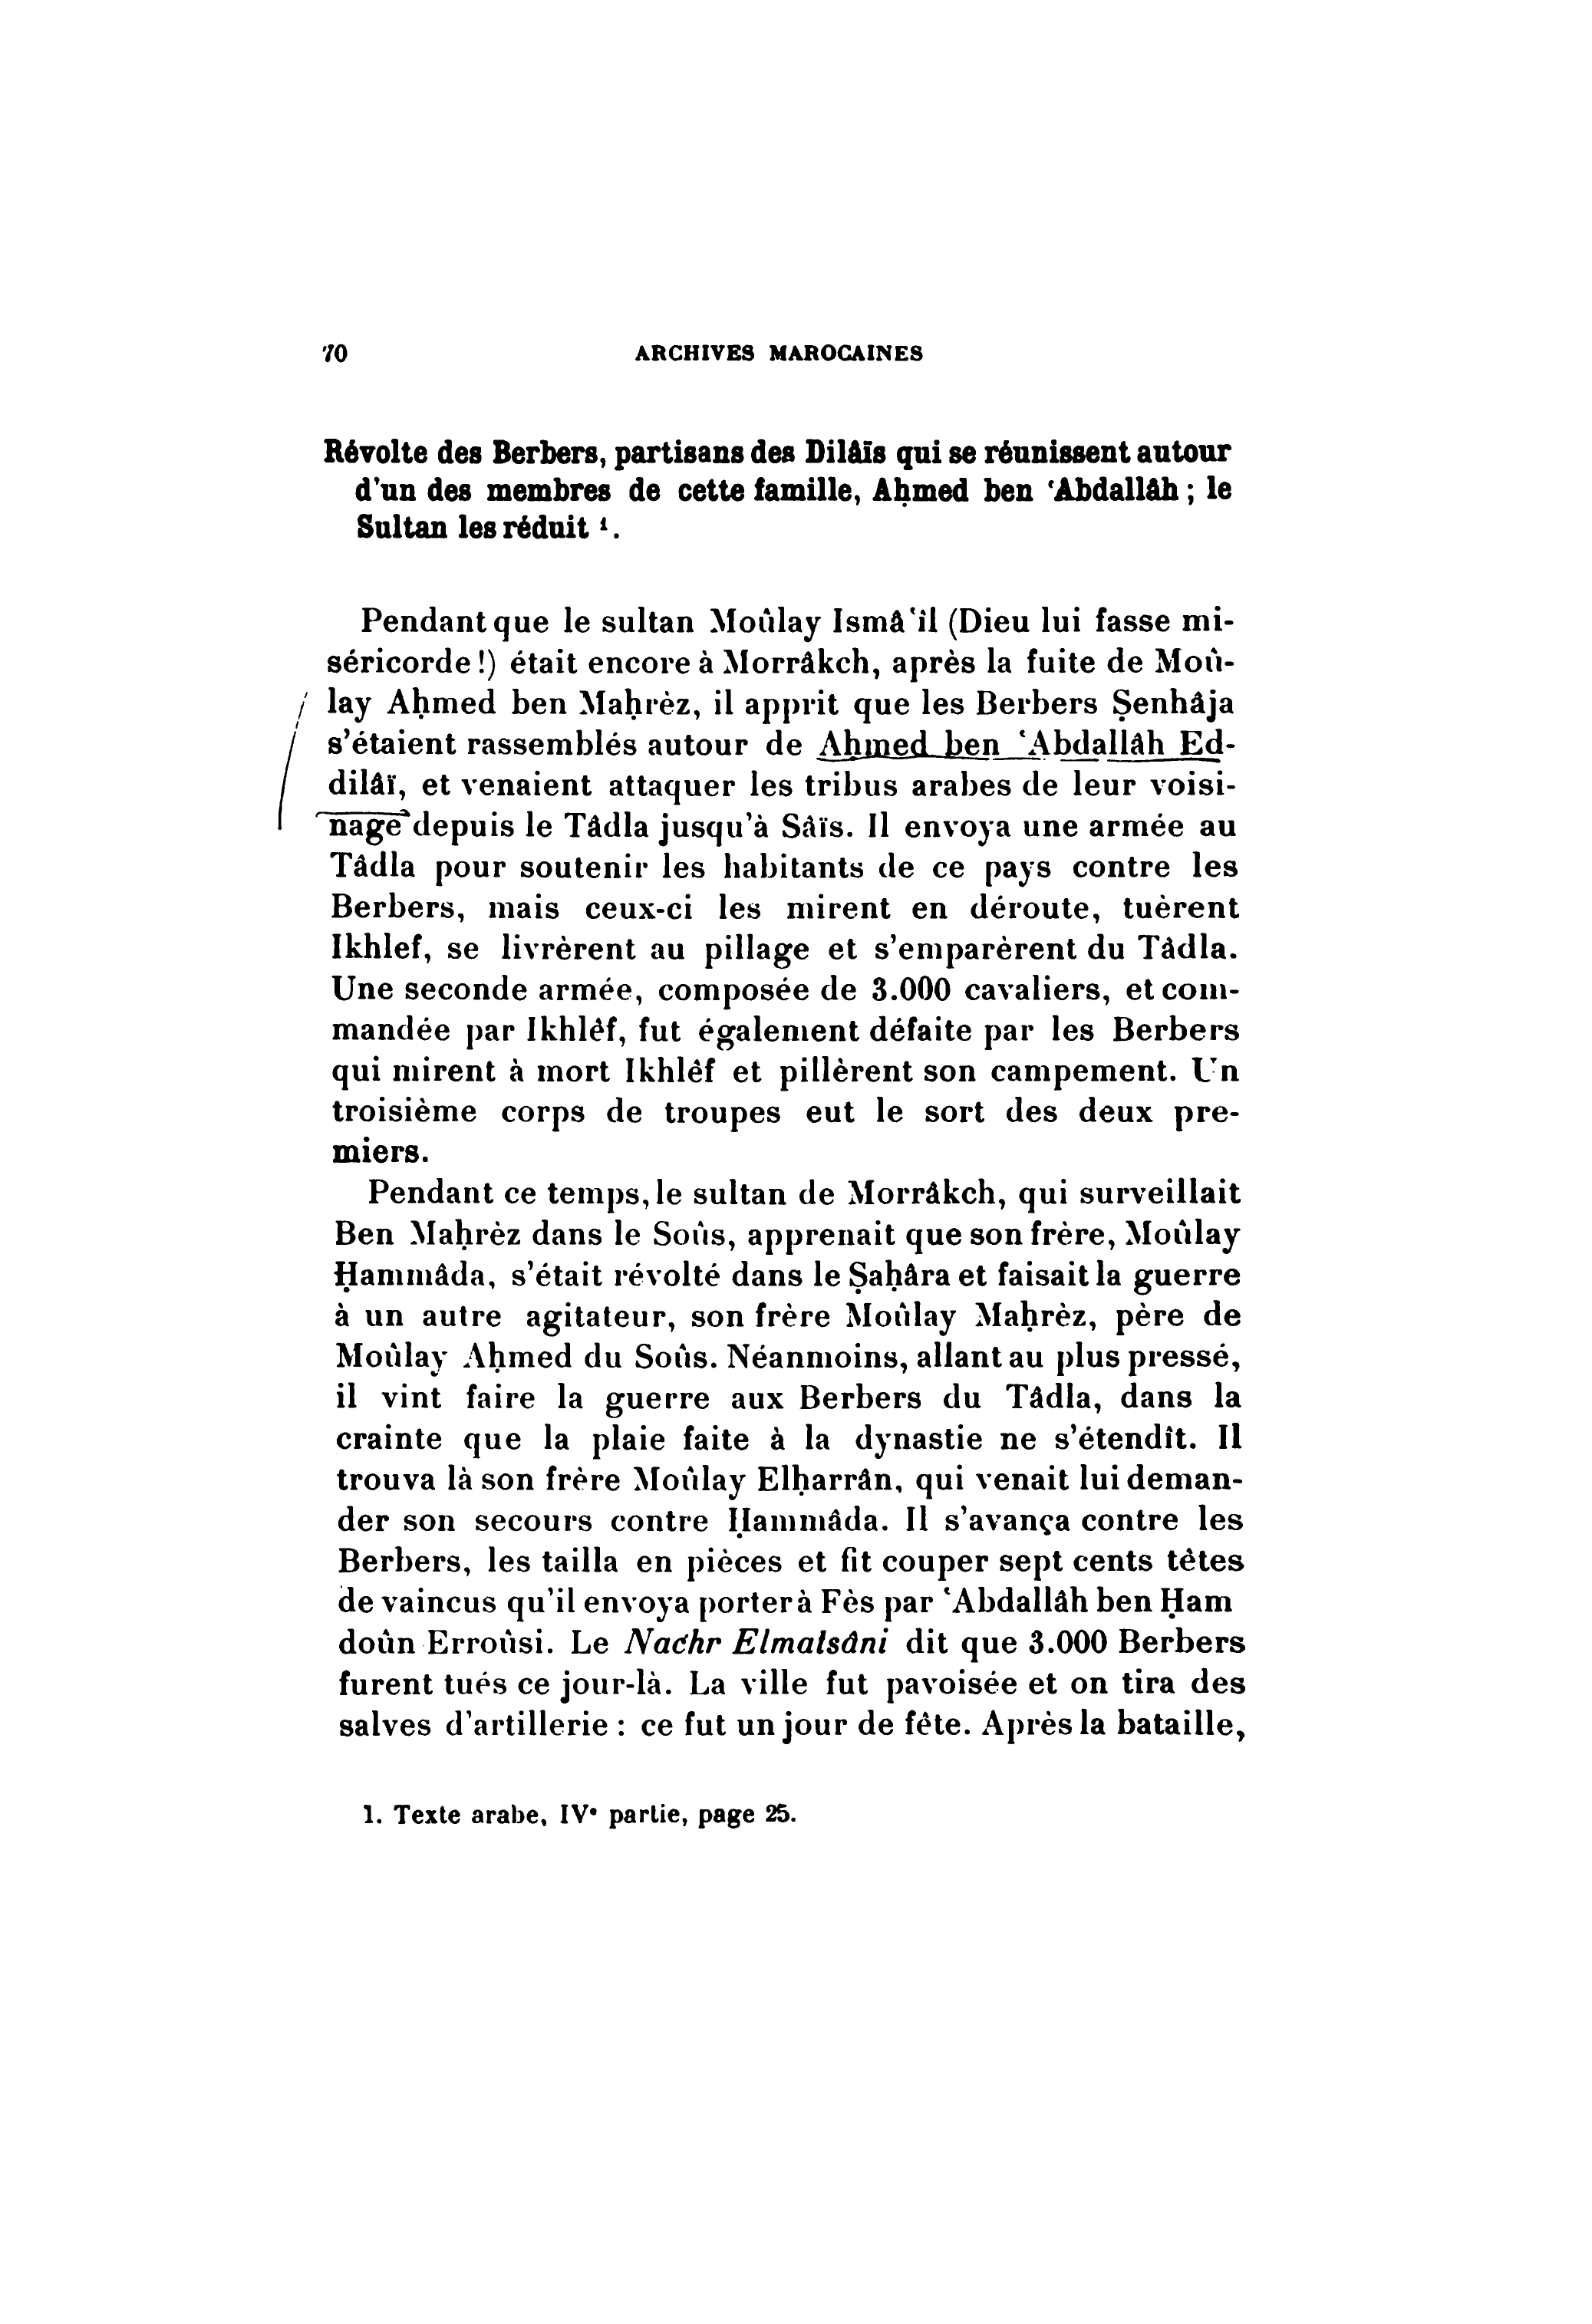 70 ARCHIVES MAROCAINES
Révolte des Berbers, partisans des Dilâïs qui se réunissent autour
d'un des membres de cette famille, Aḥmed ben ʽAbdallâh ; le
Sultan les réduit ¹.
Pendant que le sultan Moûlay Ismâʽîl (Dieu lui fasse mi-
séricorde !) était encore à Morrâkch, après la fuite de Moû-
lay Aḥmed ben Maḥrèz, il apprit que les Berbers Ṣenhâja
s'étaient rassemblés autour de Aḥmed ben ʽAbdallâh Ed-
dilâï, et venaient attaquer les tribus arabes de leur voisi-
nage depuis le Tâdla jusqu'à Sâïs. Il envoya une armée au
Tâdla pour soutenir les habitants de ce pays contre les
Berbers, mais ceux-ci les mirent en déroute, tuèrent
Ikhlef, se livrèrent au pillage et s'emparèrent du Tâdla.
Une seconde armée, composée de 3.000 cavaliers, et com-
mandée par Ikhlêf, fut également défaite par les Berbers
qui mirent à mort Ikhlêf et pillèrent son campement. Un
troisième corps de troupes eut le sort des deux pre-
miers.
Pendant ce temps, le sultan de Morrâkch, qui surveillait
Ben Maḥrèz dans le Soûs, apprenait que son frère, Moûlay
Ḥammâda, s'était révolté dans le Ṣaḥâra et faisait la guerre
à un autre agitateur, son frère Moûlay Maḥrèz, père de
Moûlay Aḥmed du Soûs. Néanmoins, allant au plus pressé,
il vint faire la guerre aux Berbers du Tâdla, dans la
crainte que la plaie faite à la dynastie ne s'étendît. Il
trouva là son frère Moûlay Elḥarrân, qui venait lui deman-
der son secours contre Ḥammâda. Il s'avança contre les
Berbers, les tailla en pièces et fit couper sept cents têtes
de vaincus qu'il envoya porter à Fès par ʽAbdallâh ben Ḥam
doûn Erroûsi. Le Nachr Elmatsâni dit que 3.000 Berbers
furent tués ce jour-là. La ville fut pavoisée et on tira des
salves d'artillerie : ce fut un jour de fête. Après la bataille,
1. Texte arabe, IVᵉ partie, page 25.